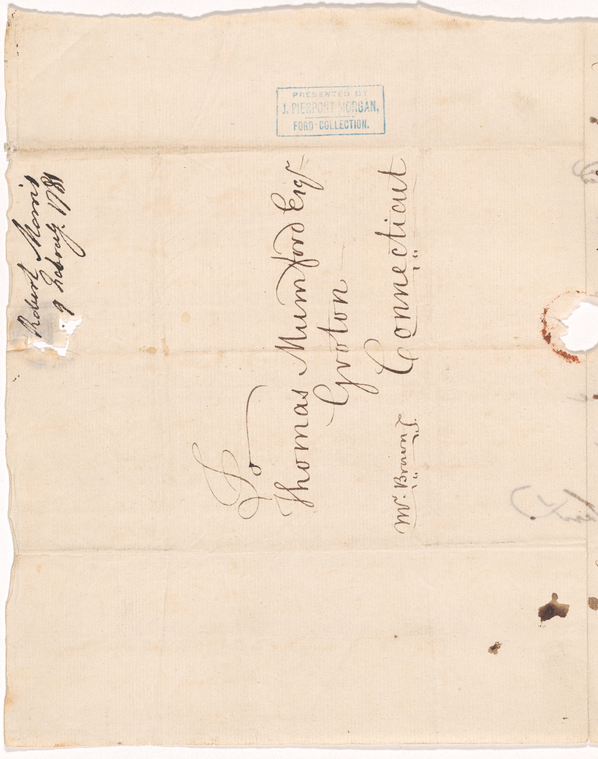 PRESENTED BY
J. PIERPONT MORGAN,
FORD COLLECTION.
Robert Morris
9 Febrauy. 1781
To
Thomas Mumford Esqr
Groton
Connecticut
Mr. Brown